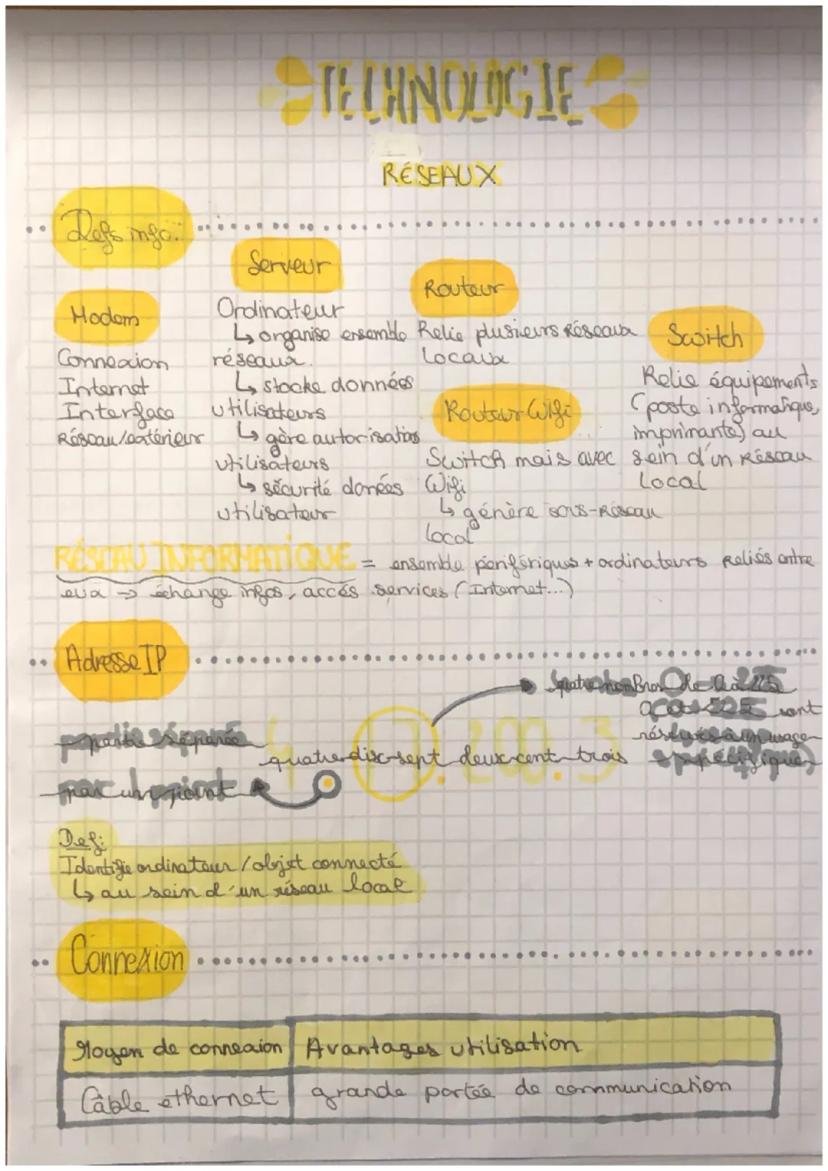 TECHNOLOGIE
RÉSEAUX
Defs info.
Modem
Connexion
Internet
Interface
Réseau/extérieur
Serveur
Ordinateur
↳ organise ensemble
réseaux.
↳ stocke données
utilisateurs
↳ gère autorisatios
utilisateurs
↳ sécurité donées
utilisateur
Routeur
Relie plusieurs Réseaux
Locaux
Routeur Wifi
Switch mais avec
Wifi
↳ génère sous-Réseau
local
Switch
Relie équipements
(poste informatique,
imprimante) au
sein d'un Réseau
Local
RÉSEAU INFORMATIQUE = ensemble périfériques + ordinateurs Reliés entre
eux → échange infos, accés services (Internet...)
Adresse IP
sont
quatre dix-sept deux-cent trois
par un point
Def:
Identifie ordinateur / objet connecté
↳ au sein d'un réseau local
Connexion
Moyen de connexion Avantages utilisation
Câble ethernet grande portée de communication